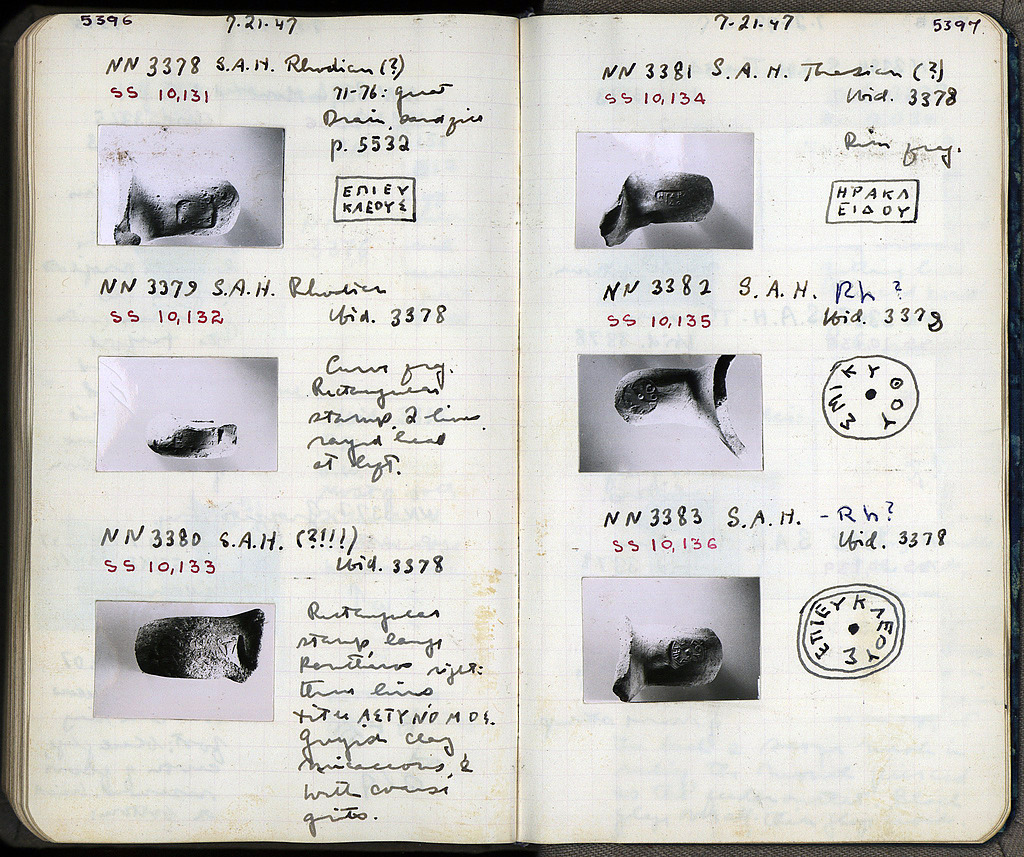 5396
7-21-47
NN 3378 S.A.H. Rhodian (?)
SS 10,131
71-76: great
Drain, sandfill
p. 5532
ΕΠΙΕΥ
ΚΛΕΟΥΣ
NN 3379 S.A.H. Rhodian
SS 10,132
Ibid. 3378
Curve frag.
Rectangular
stamp, 2 lines,
rayed head
at left.
NN 3380 S.A.H. (?!!!)
SS 10,133
Ibid. 3378
Rectangular
stamp, large
right:
three lines
ΑΣΤΥΝΟΜΟΣ.
Greyish clay
micaceous, &
with coarse
grits.
7-21-47
5397
NN 3381 S.A.H. Thasian (?)
SS 10,134
Ibid. 3378
Rim frag.
ΗΡΑΚΛ
ΕΙΔΟΥ
NN 3382 S.A.H. Rh ?
SS 10,135
Ibid. 3378
ΣΜΙΚΥΘΟΥ
NN 3383 S.A.H. - Rh ?
SS 10,136
Ibid. 3378
ΕΠΙΕΥΚΛΕΟΥΣ